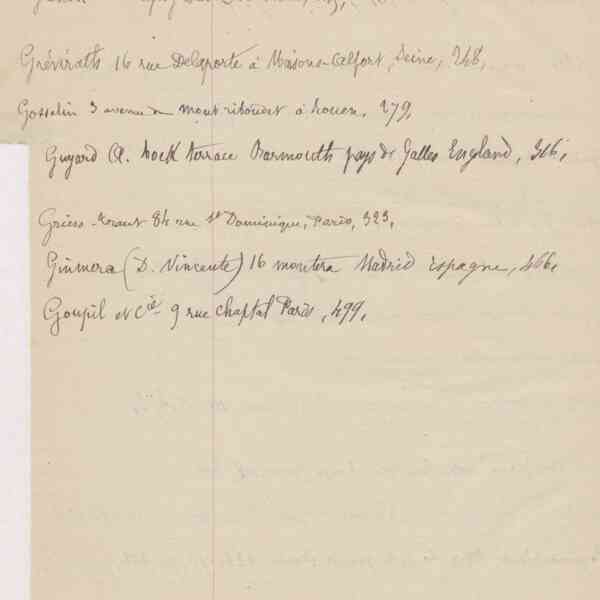 Grévirath 16 rue Delaporte à Maisons-Alfort, Seine, 248,
Gosselin 3 avenue du mont riboudet à Rouen, 279,
Guyard A. Rock terrace Barmouth pays de Galles England, 316,
Griess-Traut 84 rue St Dominique, Paris, 323,
Guimera (D. Vincente) 16 montera Madrid Espagne, 466,
Goupil et Cie 9 rue Chaptal Paris, 499,